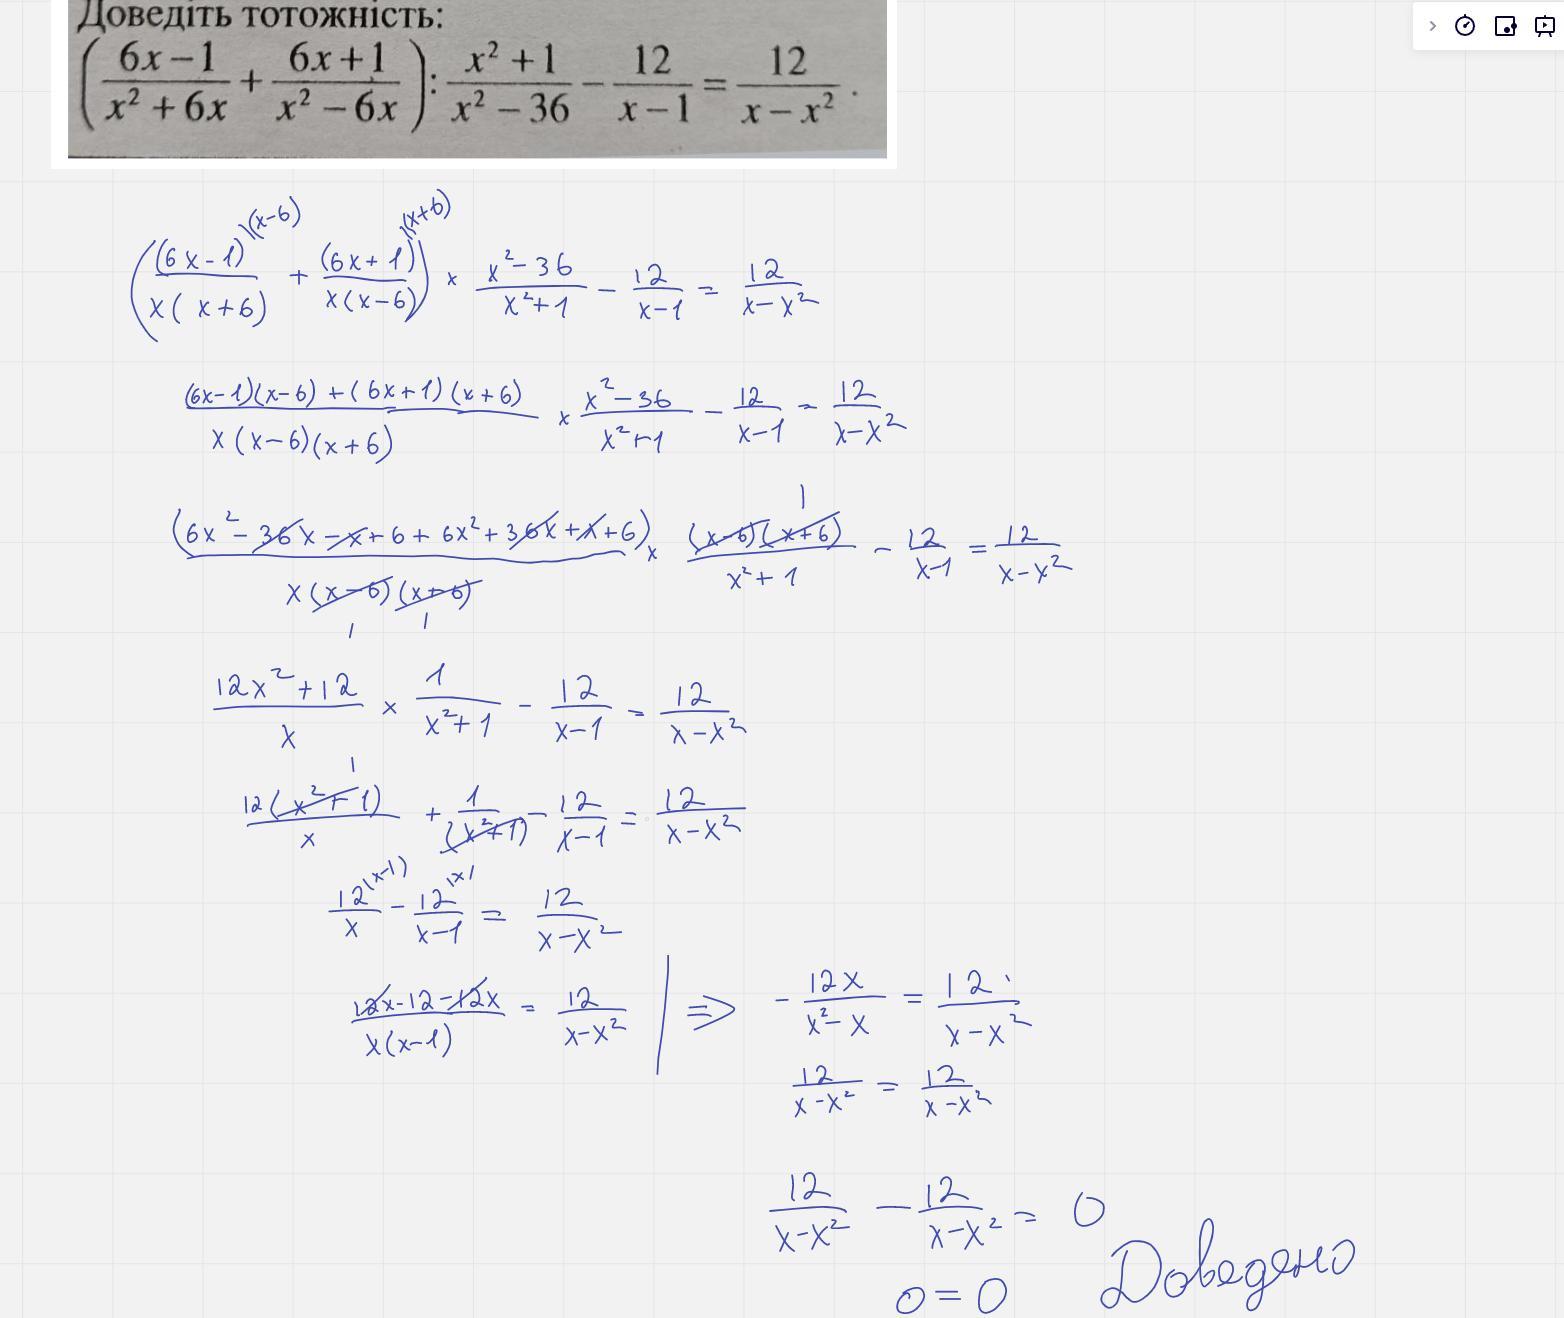 Доведіть тотожність:
( (6x − 1)/(x² + 6x) + (6x + 1)/(x² − 6x) ) : (x² + 1)/(x² − 36) − 12/(x − 1) = 12/(x − x²) .
( (6x − 1)^(x−6)/(x(x+6)) + (6x + 1)^(x+6)/(x(x−6)) ) × (x² − 36)/(x² + 1) − 12/(x−1) = 12/(x−x²)
((6x−1)(x−6) + (6x+1)(x+6))/(x(x−6)(x+6)) × (x² − 36)/(x² + 1) − 12/(x−1) = 12/(x−x²)
(6x² − 36x − x + 6 + 6x² + 36x + x + 6)/(x(x−6)(x+6)) × ((x−6)(x+6))/(x² + 1) − 12/(x−1) = 12/(x−x²)
(12x² + 12)/x × 1/(x² + 1) − 12/(x−1) = 12/(x−x²)
12(x² + 1)/x + 1/(x² + 1) − 12/(x−1) = 12/(x−x²)
12^(x−1)/x − 12^(x)/(x−1) = 12/(x−x²)
(12x − 12 − 12x)/(x(x−1)) = 12/(x−x²) | ⇒ − 12x/(x² − x) = 12/(x−x²)
12/(x−x²) = 12/(x−x²)
12/(x−x²) − 12/(x−x²) = 0
0 = 0 Доведено